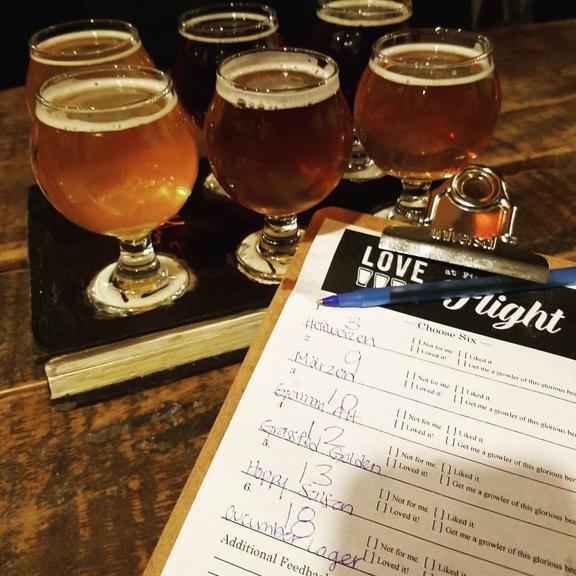 universal
LOVE
at Fi
flight
Choose Six
1.
3
Hefeweizen
[ ] Not for me [ ] Liked it
[ ] Loved it! [ ] Get me a growler of this glorious bee
2.
9
Märzen
[ ] Not for me [ ] Liked it
[ ] Loved it! [ ] Get me a growler of this glorious bee
3.
10
German Alt
[ ] Not for me [ ] Liked it
[ ] Loved it! [ ] Get me a growler of this glorious bee
4.
12
Grassfed Golden
[ ] Not for me [ ] Liked it
[ ] Loved it! [ ] Get me a growler of this glorious bee
5.
13
Hoppy Saison
[ ] Not for me [ ] Liked it
[ ] Loved it! [ ] Get me a growler of this glorious bee
6.
18
Cucumber Lager
[ ] Not for me [ ] Liked it
[ ] Loved it! [ ] Get me a growler of this glo
Additional Feedback